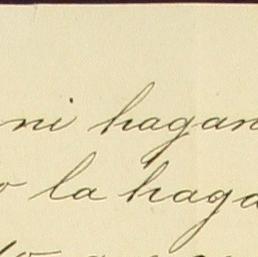 ni hagan
o la haga